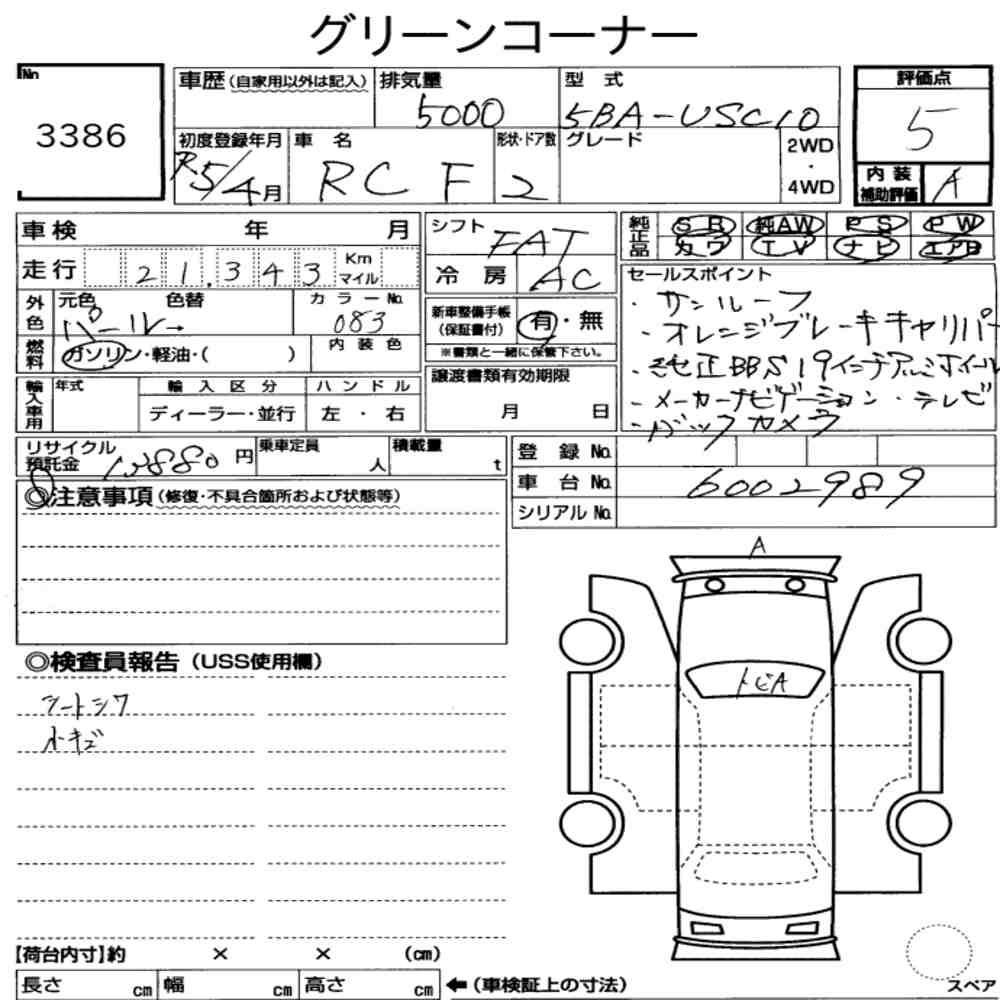 グリーンコーナー
No
3386
車歴(自家用以外は記入) 排気量 型 式
5000 5BA-USC10
初度登録年月 車 名 形状・ドア数 グレード 2WD
・
4WD
R5/4月 RC F 2
評価点
5
内装 補助評価 A
車検 年 月
走行 21,343 Km マイル
外色 元色 色替 カラーNo.
パール 083
燃料 ガソリン・軽油・( ) 内装色
輸入車用 年式 輸入区分 ハンドル
ディーラー・並行 左・右
シフト FAT
冷房 AC
新車整備手帳 (保証書付) 有・無
※書類と一緒に保管下さい。
譲渡書類有効期限
月 日
純正品 SR 純AW PS PW
カワ TV ナビ エアB
セールスポイント
・サンルーフ
・オレンジブレーキキャリパー
・純正BBS19インチアルミホイール
・メーカーナビゲーション・テレビ
・バックカメラ
リサイクル預託金 円 乗車定員 人 積載量 t
登録No.
車台No. 6002989
シリアルNo.
◎注意事項(修復・不具合箇所および状態等)
◎検査員報告(USS使用欄)
シートシワ
小キズ
A
トビA
【荷台内寸】約 × × (cm)
長さ cm 幅 cm 高さ cm ←(車検証上の寸法)
スペア